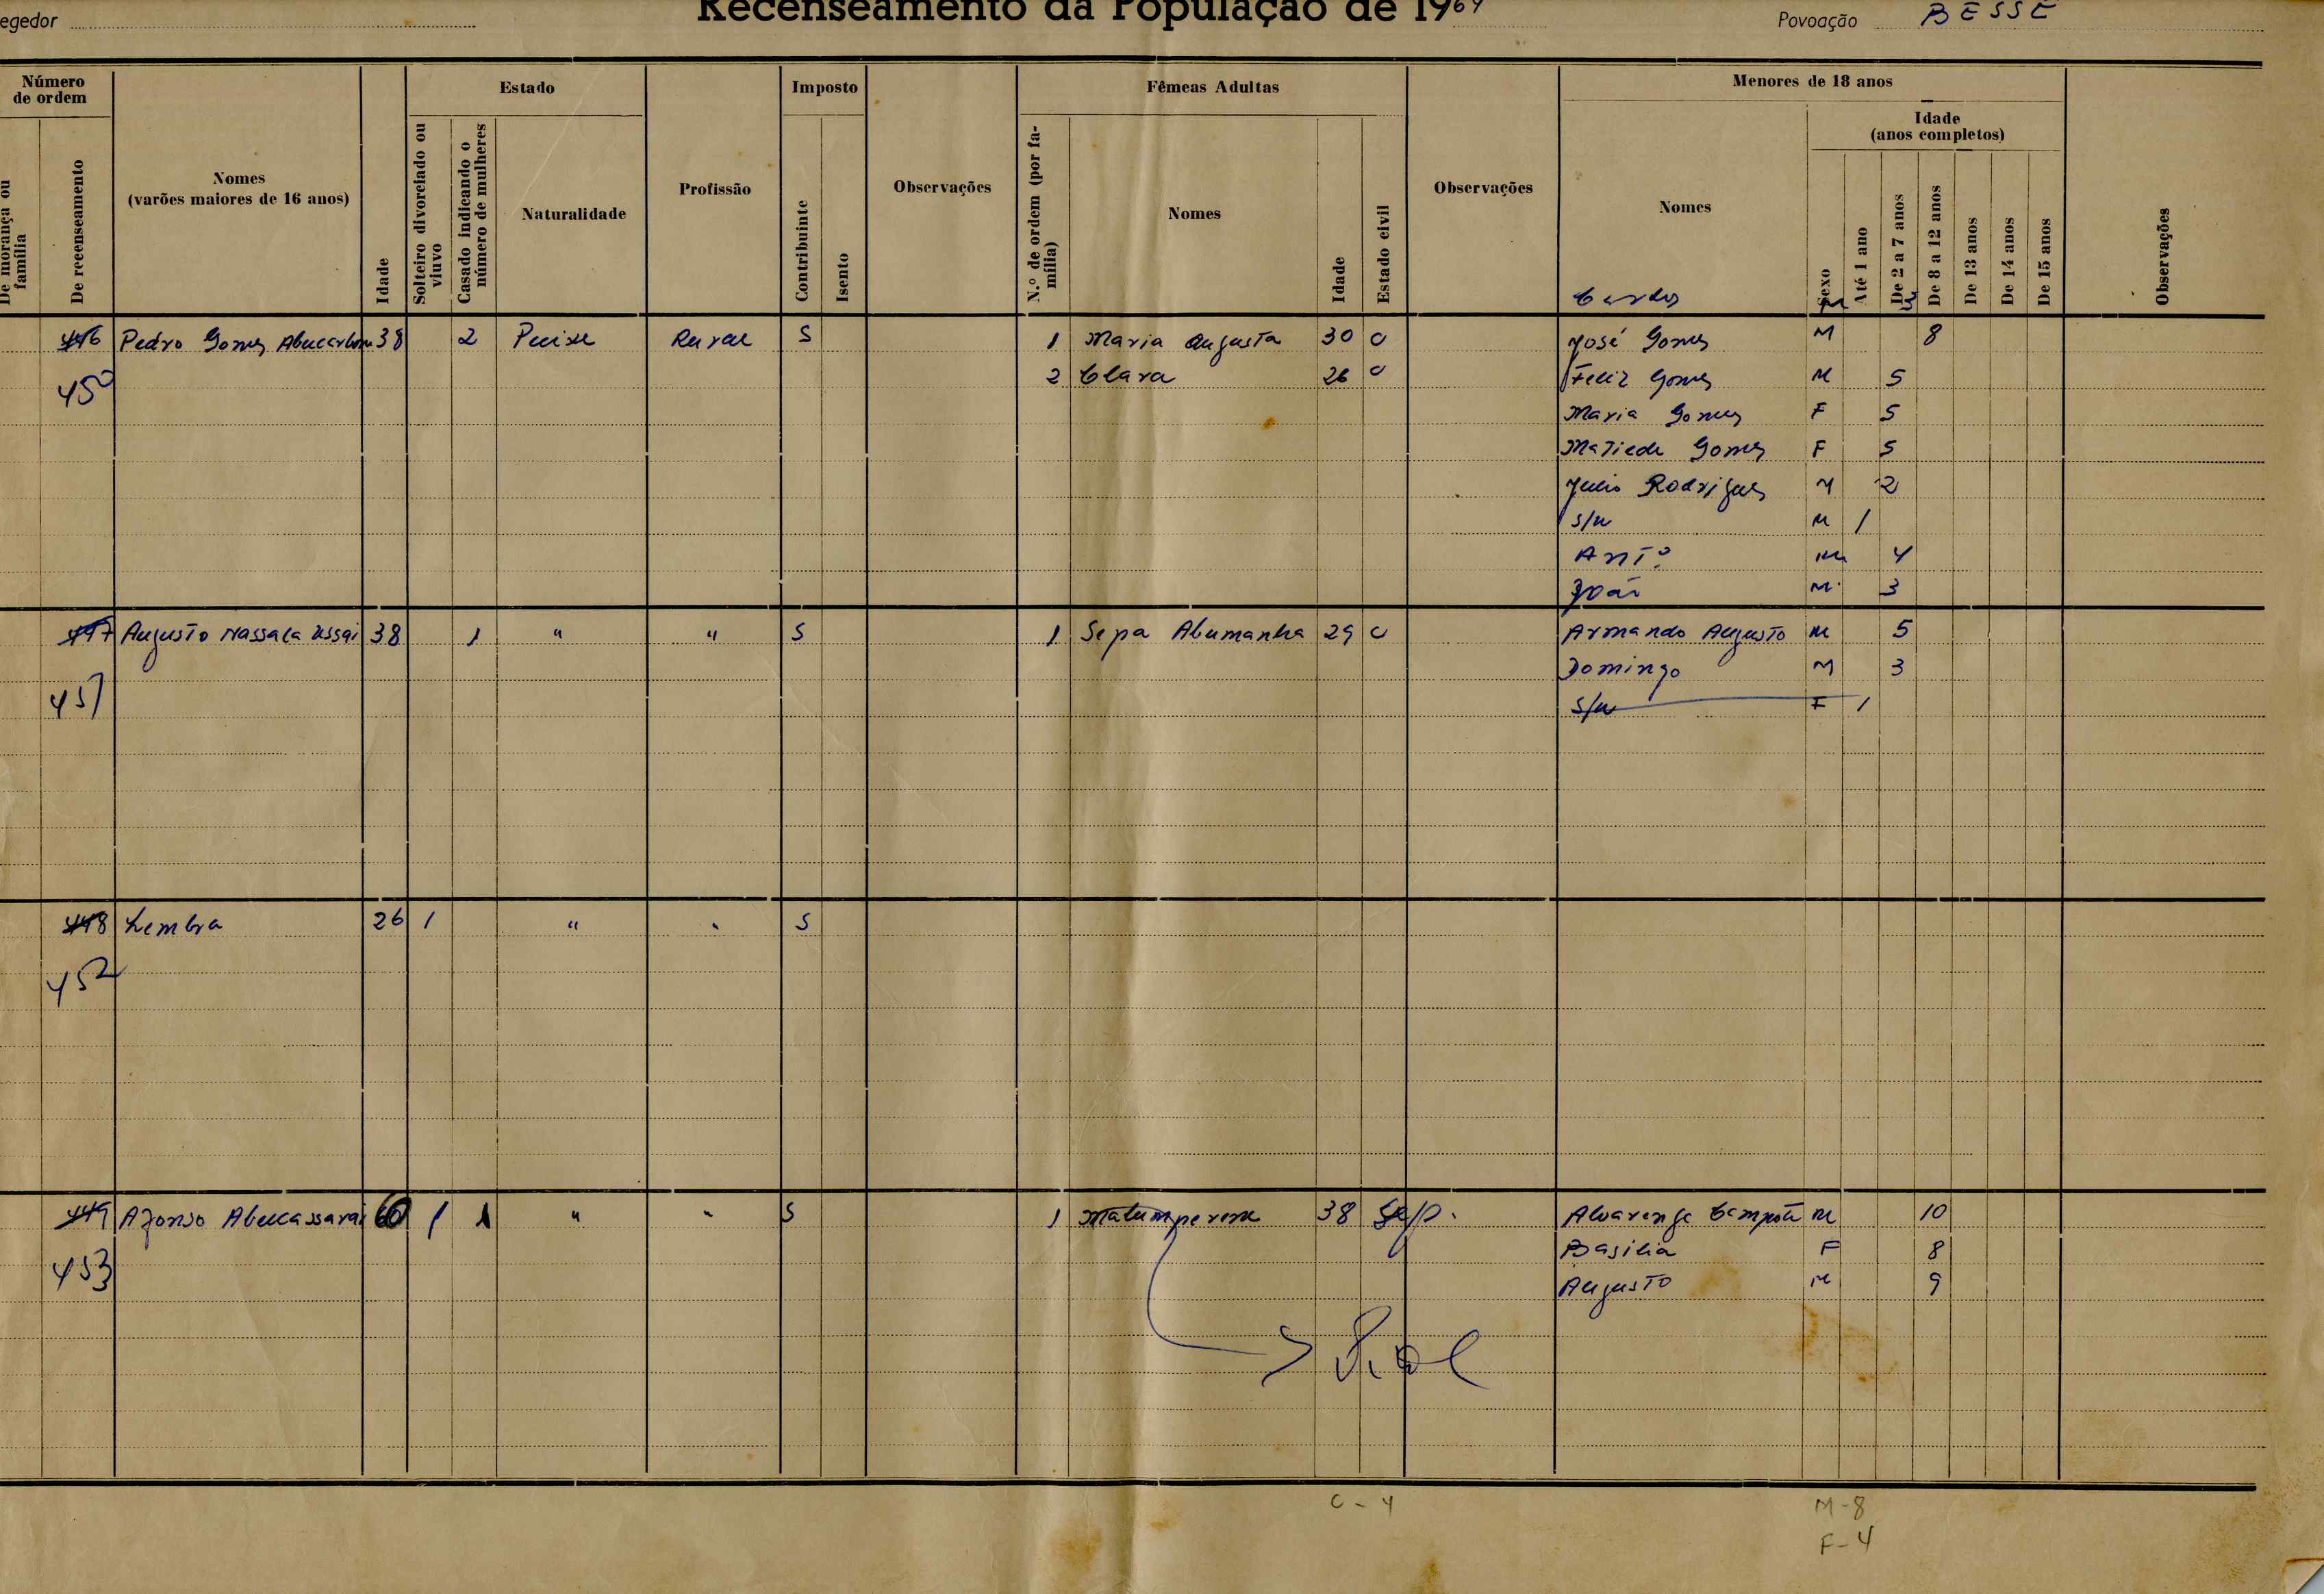 egedor
Recenseamento da População de 1964
Povoação BESSE
Número de ordem
De morança ou família
De recenseamento
Nomes
(varões maiores de 16 anos)
Idade
Estado
Solteiro divorciado ou viuvo
Casado indicando o número de mulheres
Naturalidade
Profissão
Imposto
Contribuinte
Isento
Observações
Fêmeas Adultas
N.º de ordem (por família)
Nomes
Idade
Estado civil
Observações
Menores de 18 anos
Nomes
Sexo
Idade
(anos completos)
Até 1 ano
De 2 a 7 anos
De 8 a 12 anos
De 13 anos
De 14 anos
De 15 anos
Observações
M 3
446 Pedro Gomes 38 2 Rural S 1 Maria Augusta 30 C José Gomes M 8
450 2 Clara 26 C Feliz Gomes M 5
Maria Gomes F 5
Matilde Gomes F 5
Julio Rodrigues M 2
s/n M 1
Antº M 4
João M 3
447 Augusto Nassala Ussai 38 1 " " S 1 Sepa Abumanha 29 C Armando Augusto M 5
Domingo M 3
451 s/n F 1
448 Lembra 26 1 " " S
452
449 Afonso Abucassarai 60 1 1 " " S 1 38 Alvarenga M 10
453 Basilia F 8
Augusto M 9
C - 4
M - 8
F - 4